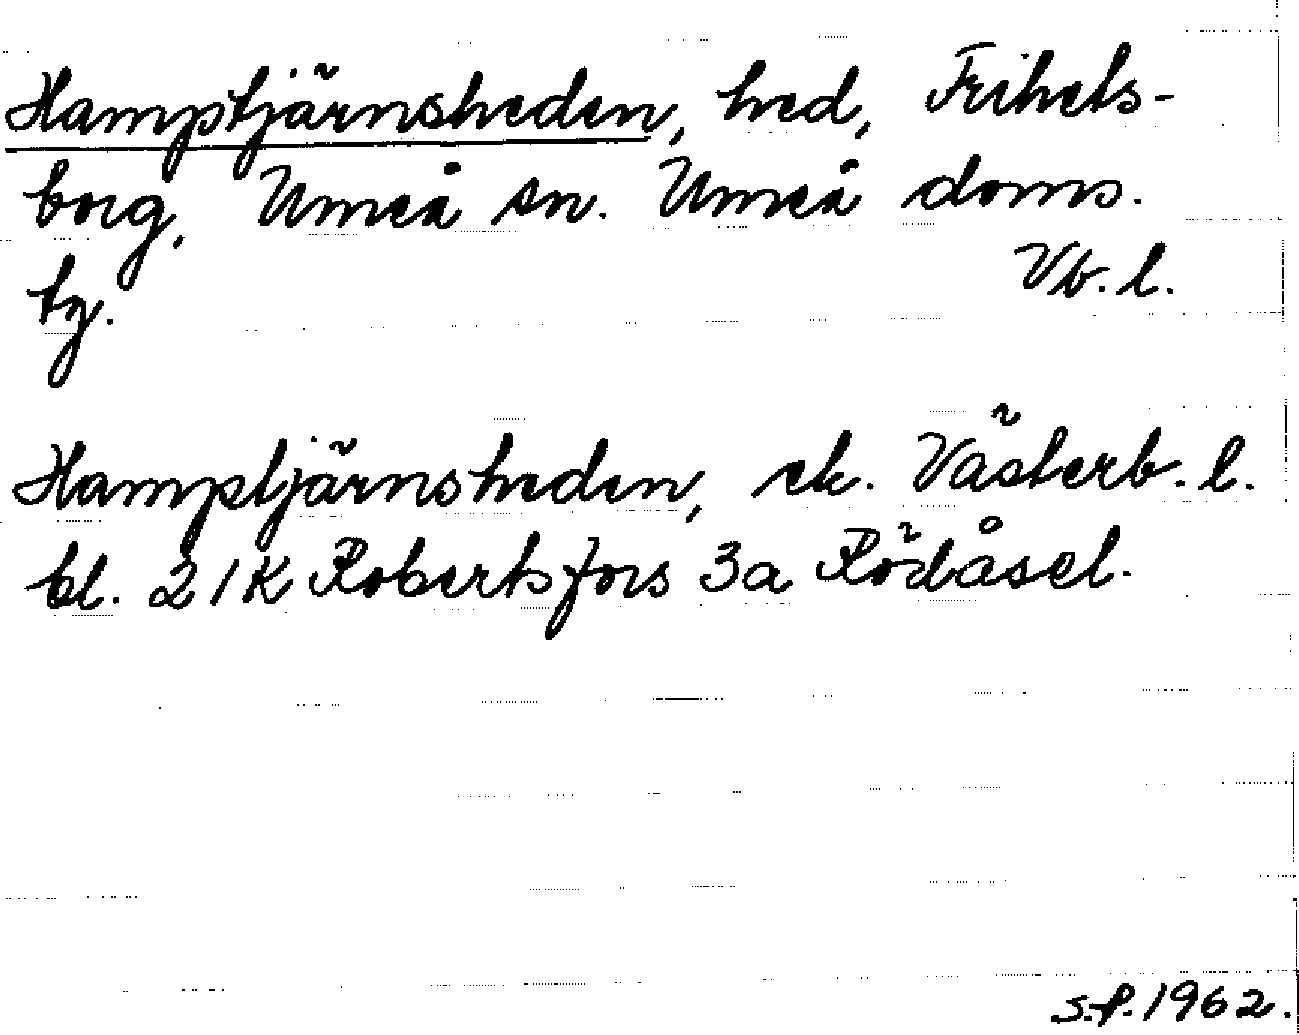 Hamptjärnsheden, hed, Frihets-
borg, Umeå sn. Umeå doms.
tg.
Vb. l.
Hamptjärnsheden, ek. Västerb. l.
bl. 21K Robertsfors 3a Rödåsel.
S.f. 1962.